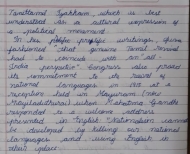 Tanittamil Iyakkam, which is best
understood as a cultural expression of
a political movement.
The prolific writings often
fashioned that genuine Tamil revival
had to coincide with an all
India perspective. Congress which placed
its commitment to the revival of
national languages in 1915 at a
reception held Mayuram (now
Mayiladuthurai) where Mahatma Gandhi
responded to welcome address
presented in English. Nationalism cannot
be developed by killing our national
languages and using English in
their place.